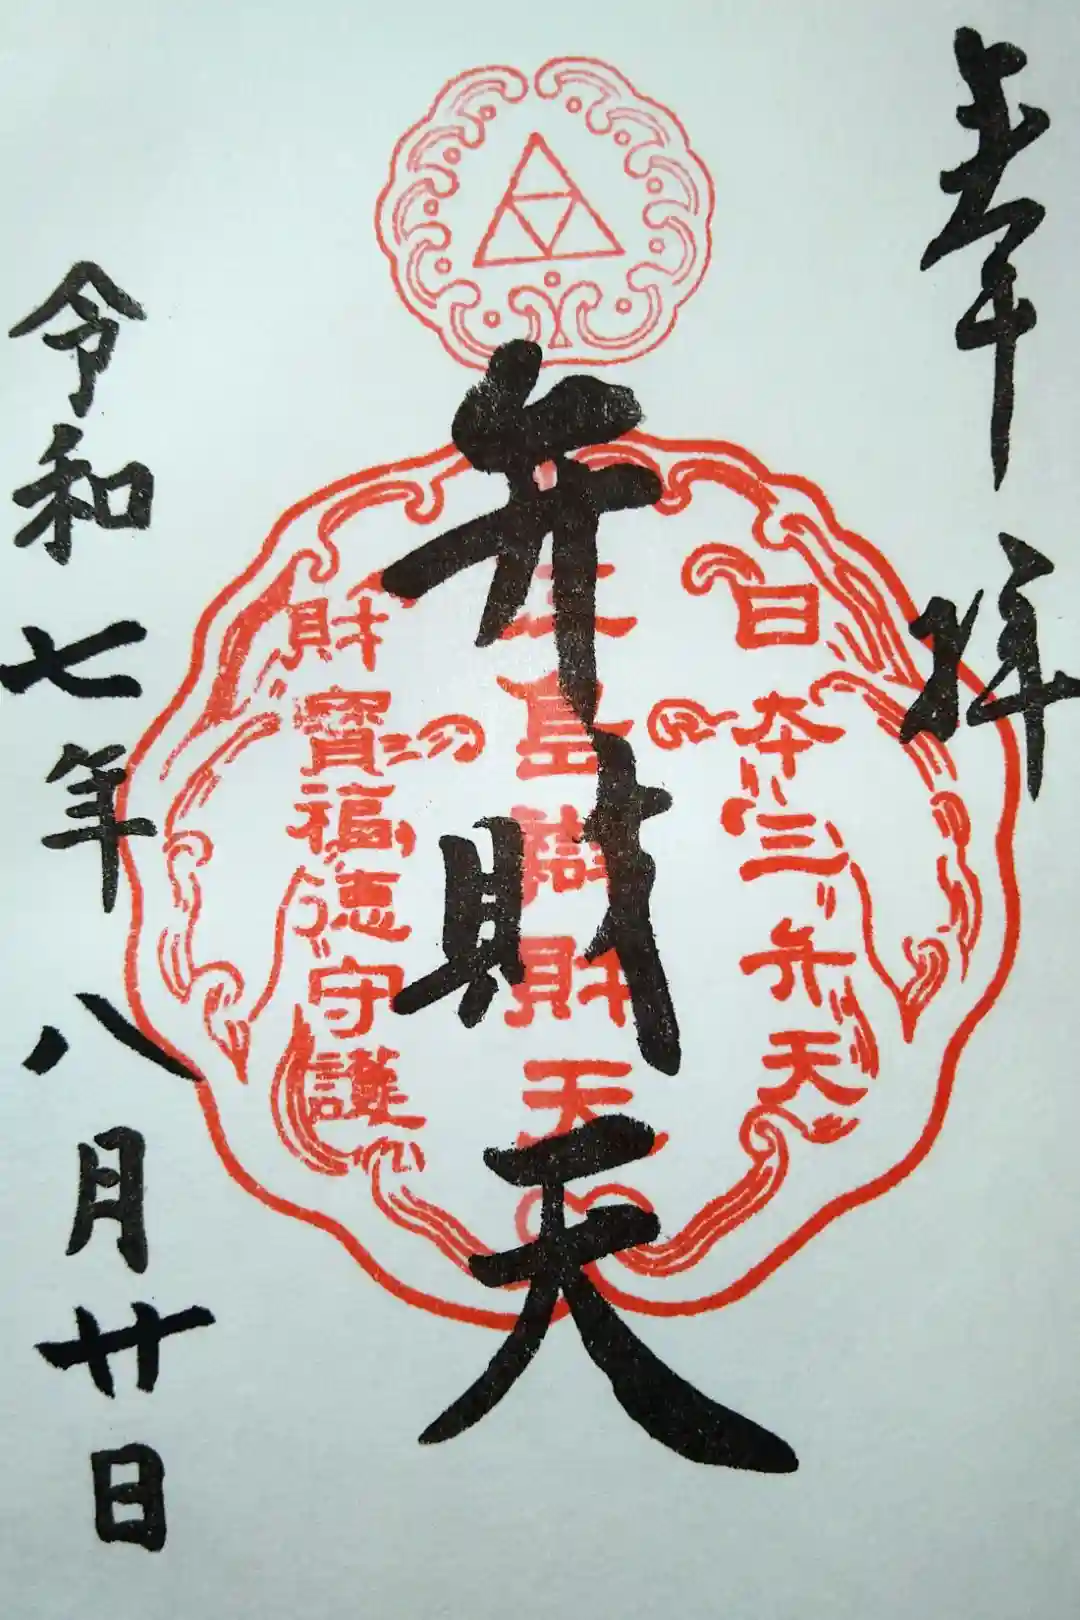 奉拝
日本三弁天
島財天
財寶福徳守護
弁財天
令和七年八月廿日